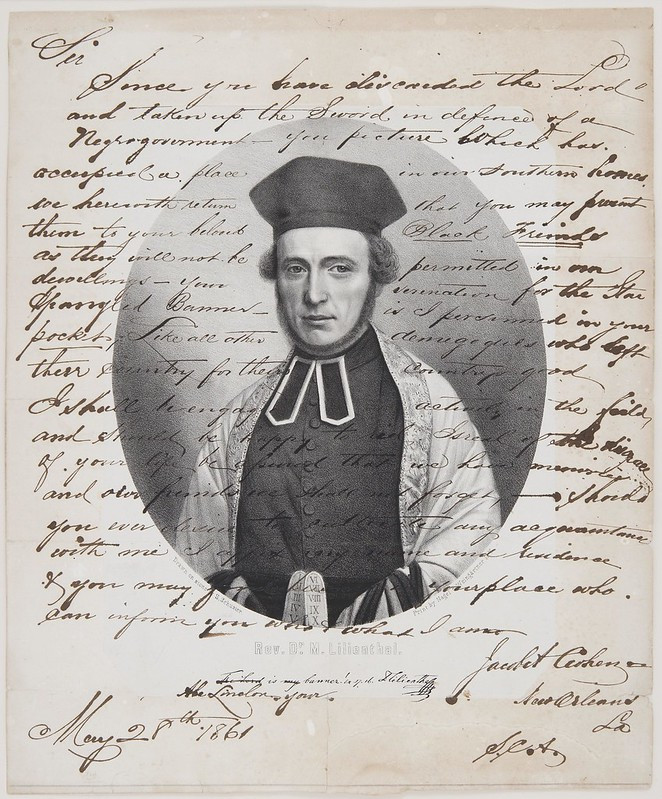 Sir
Since you have discarded the Lord
and taken up the Sword in defence of a
Negrogovernment — your picture Which has
occupied a place in our Southern homes,
we herewith return that you may present
them to your beloved Black Friends
as they will not be permitted in our
dwellings — Your veneration for the Star
Spangled Banner — is I presumed in your
pocket, Like all other demagogues who left
their Country for their Country's good
I shall be engaged actively in the field
and should be happy to rid Israel of the disgrace
of your life be assured that we have memories
and our friends we shall not forget — Should
you ever desire to cultivate any acquaintance
with me I affix my name and residence
& you may find in yourplace who
can inform you who & what I am
Drawn on stone
Print by
VI
VII
III VIII
IV IX
V X
Rev. Dr. M. Lilienthal.
is my banner
Abe Lincoln your
Jacob A Cohen
New Orleans
La
May 28th 1861
S. C. A.